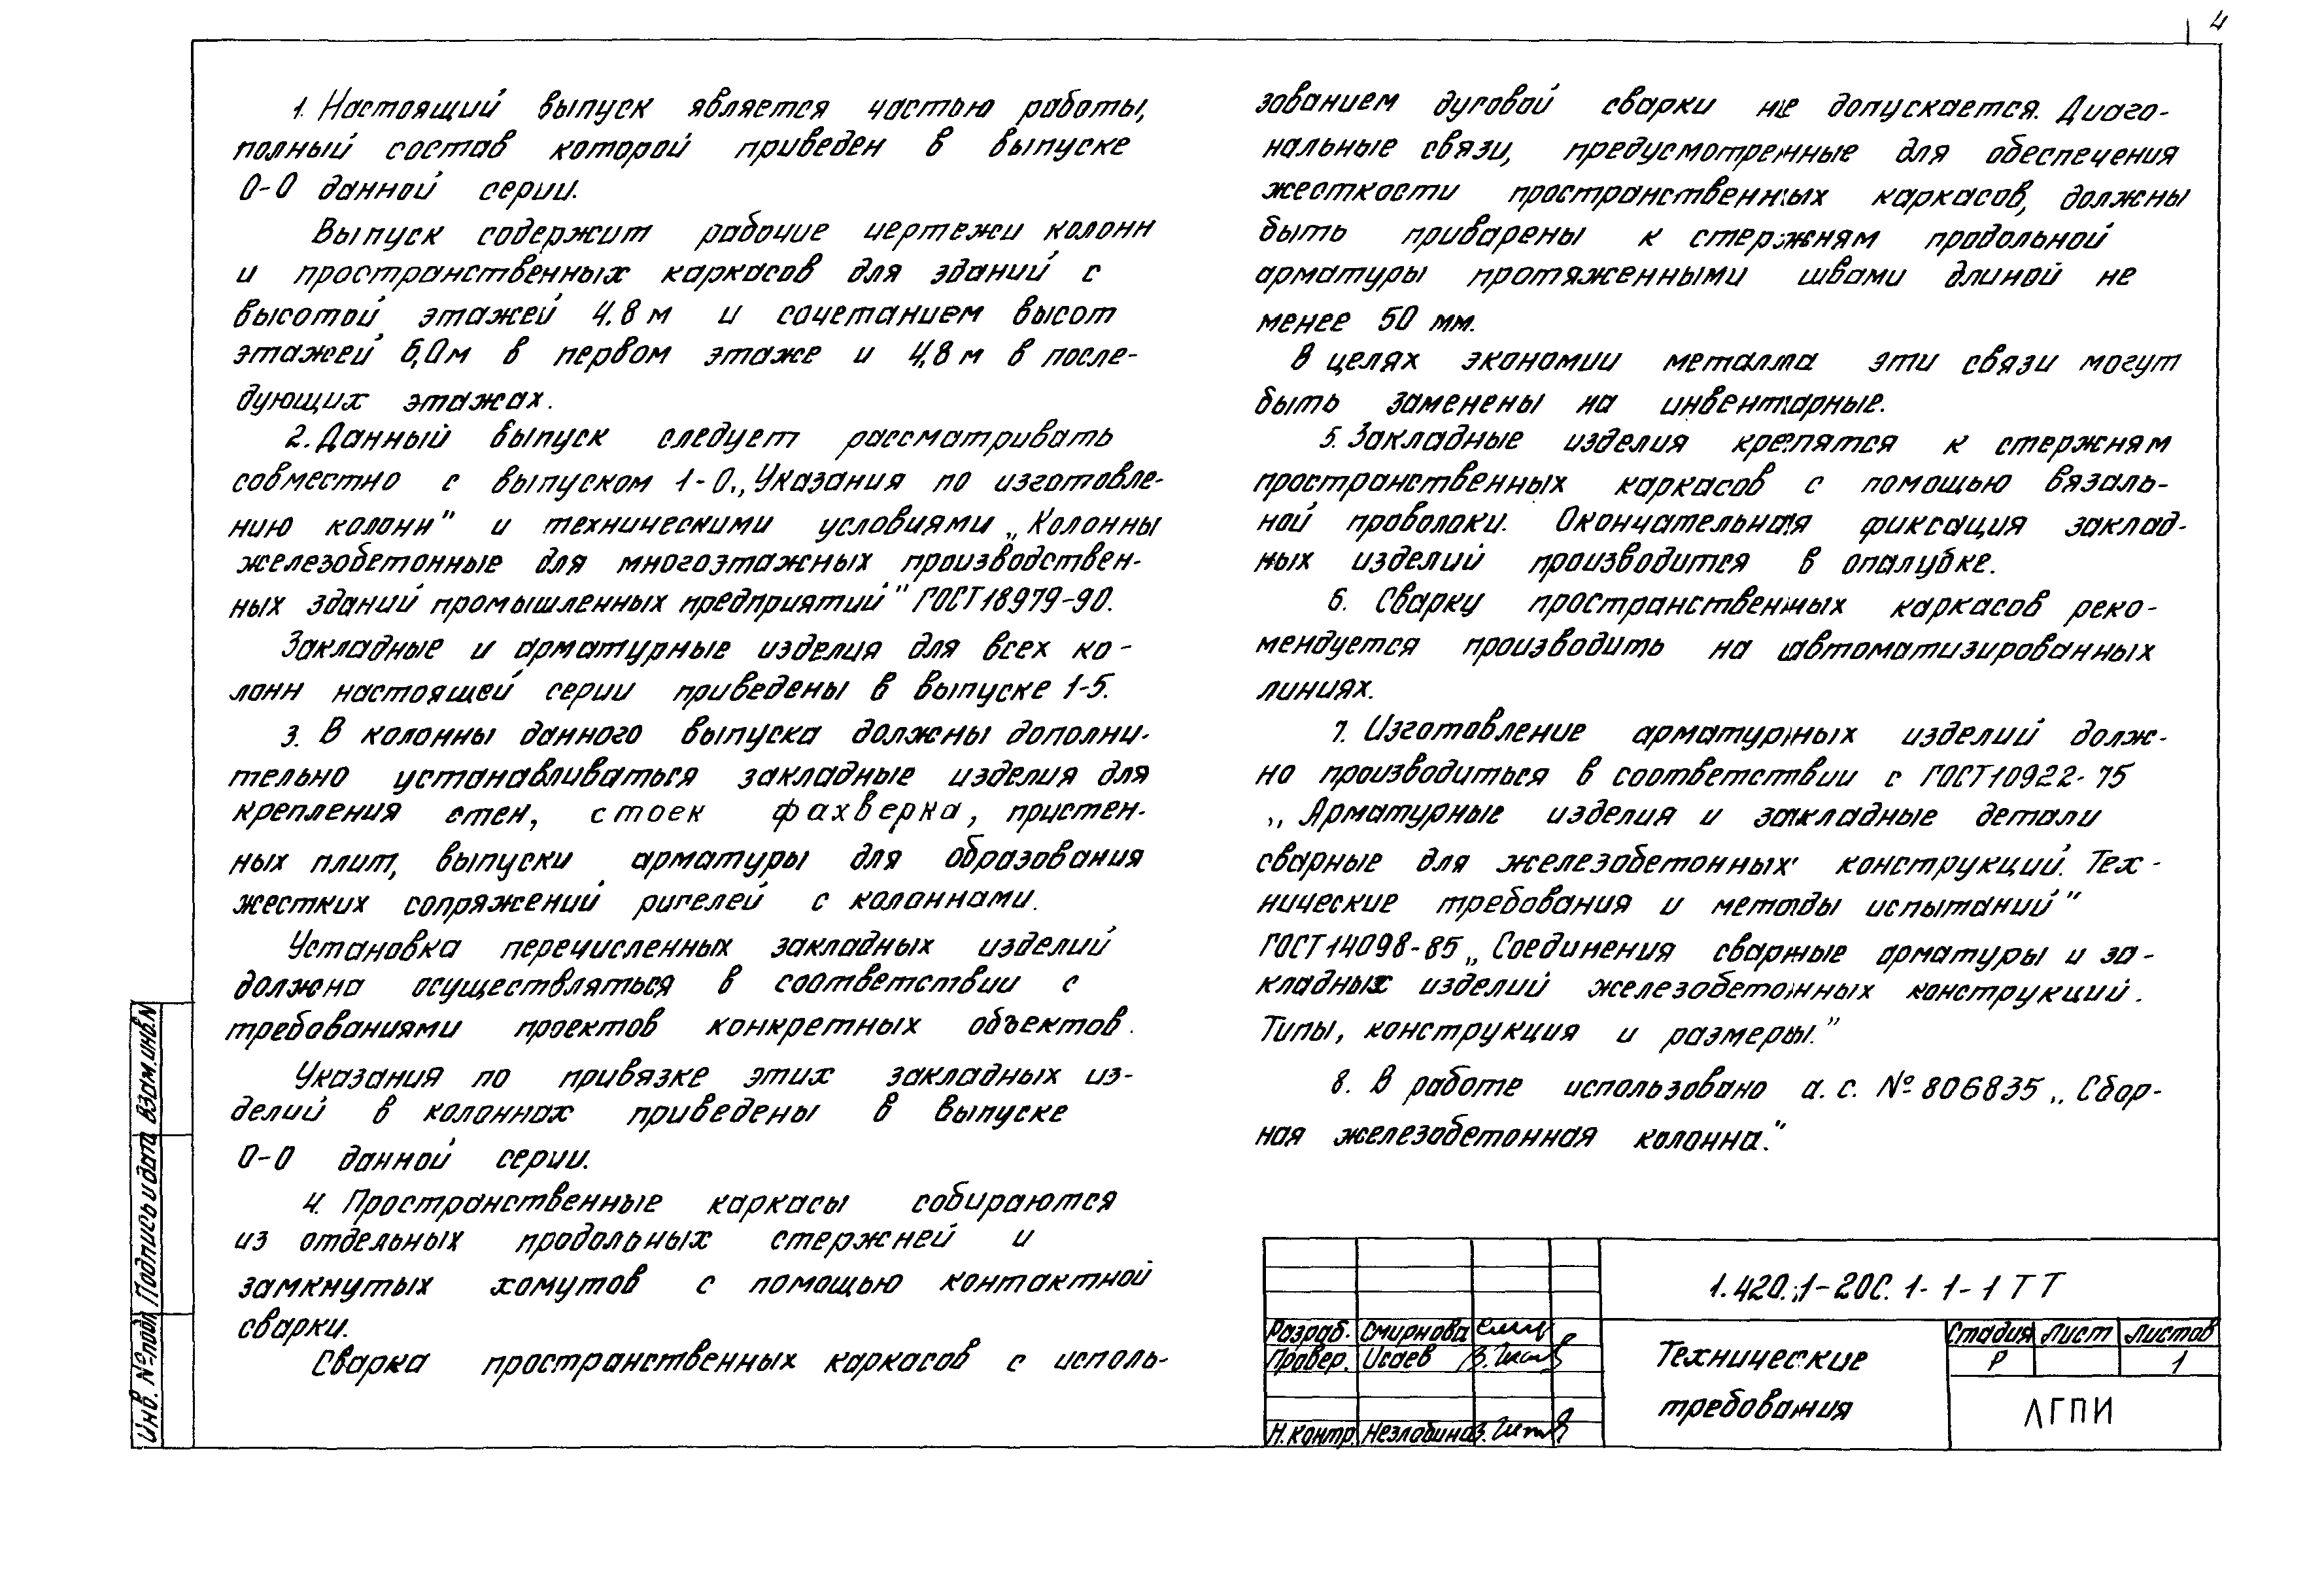 4
1. Настоящий выпуск является частью работы,
полный состав которой приведен в выпуске
0-0 данной серии.
Выпуск содержит рабочие чертежи колонн
и пространственных каркасов для зданий с
высотой этажей 4.8 м и сочетанием высот
этажей 6,0м в первом этаже и 4,8 м в после-
дующих этажах.
2. Данный выпуск следует рассматривать
совместно с выпуском 1-0 „Указания по изготовле-
нию колонн" и техническими условиями „Колонны
железобетонные для многоэтажных производствен-
ных зданий промышленных предприятий" ГОСТ 18979-90.
Закладные и арматурные изделия для всех ко-
лонн настоящей серии приведены в выпуске 1-5.
3. В колонны данного выпуска должны дополни-
тельно устанавливаться закладные изделия для
крепления стен, стоек фахверка, пристен-
ных плит, выпуски арматуры для образования
жестких сопряжений ригелей с колоннами.
Установка перечисленных закладных изделий
должна осуществляться в соответствии с
требованиями проектов конкретных объектов.
Указания по привязке этих закладных из-
делий в колоннах приведены в выпуске
0-0 данной серии.
4. Пространственные каркасы собираются
из отдельных продольных стержней и
замкнутых хомутов с помощью контактной
сварки.
Сварка пространственных каркасов с исполь-
зованием дуговой сварки не допускается. Диаго-
нальные связи, предусмотренные для обеспечения
жесткости пространственных каркасов, должны
быть приварены к стержням продольной
арматуры протяженными швами длиной не
менее 50 мм.
В целях экономии металла эти связи могут
быть заменены на инвентарные.
5. Закладные изделия крепятся к стержням
пространственных каркасов с помощью вязаль-
ной проволоки. Окончательная фиксация заклад-
ных изделий производится в опалубке.
6. Сварку пространственных каркасов реко-
мендуется производить на автоматизированных
линиях.
7. Изготовление арматурных изделий долж-
но производиться в соответствии с ГОСТ 10922-75
„Арматурные изделия и закладные детали
сварные для железобетонных конструкций. Тех-
нические требования и методы испытаний"
ГОСТ 14098-85 „Соединения сварные арматуры и за-
кладных изделий железобетонных конструкций.
Типы, конструкция и размеры."
8. В работе использовано а.с. № 806835 „Сбор-
ная железобетонная колонна."
Инв. № подл Подпись и дата Взам.инв.N
1.420.1-20С.1-1-1ТТ
Разраб. Смирнова
Провер. Исаев
Н.контр. Незлобина
Технические
требования
Стадия Лист Листов
Р 1
ЛГПИ